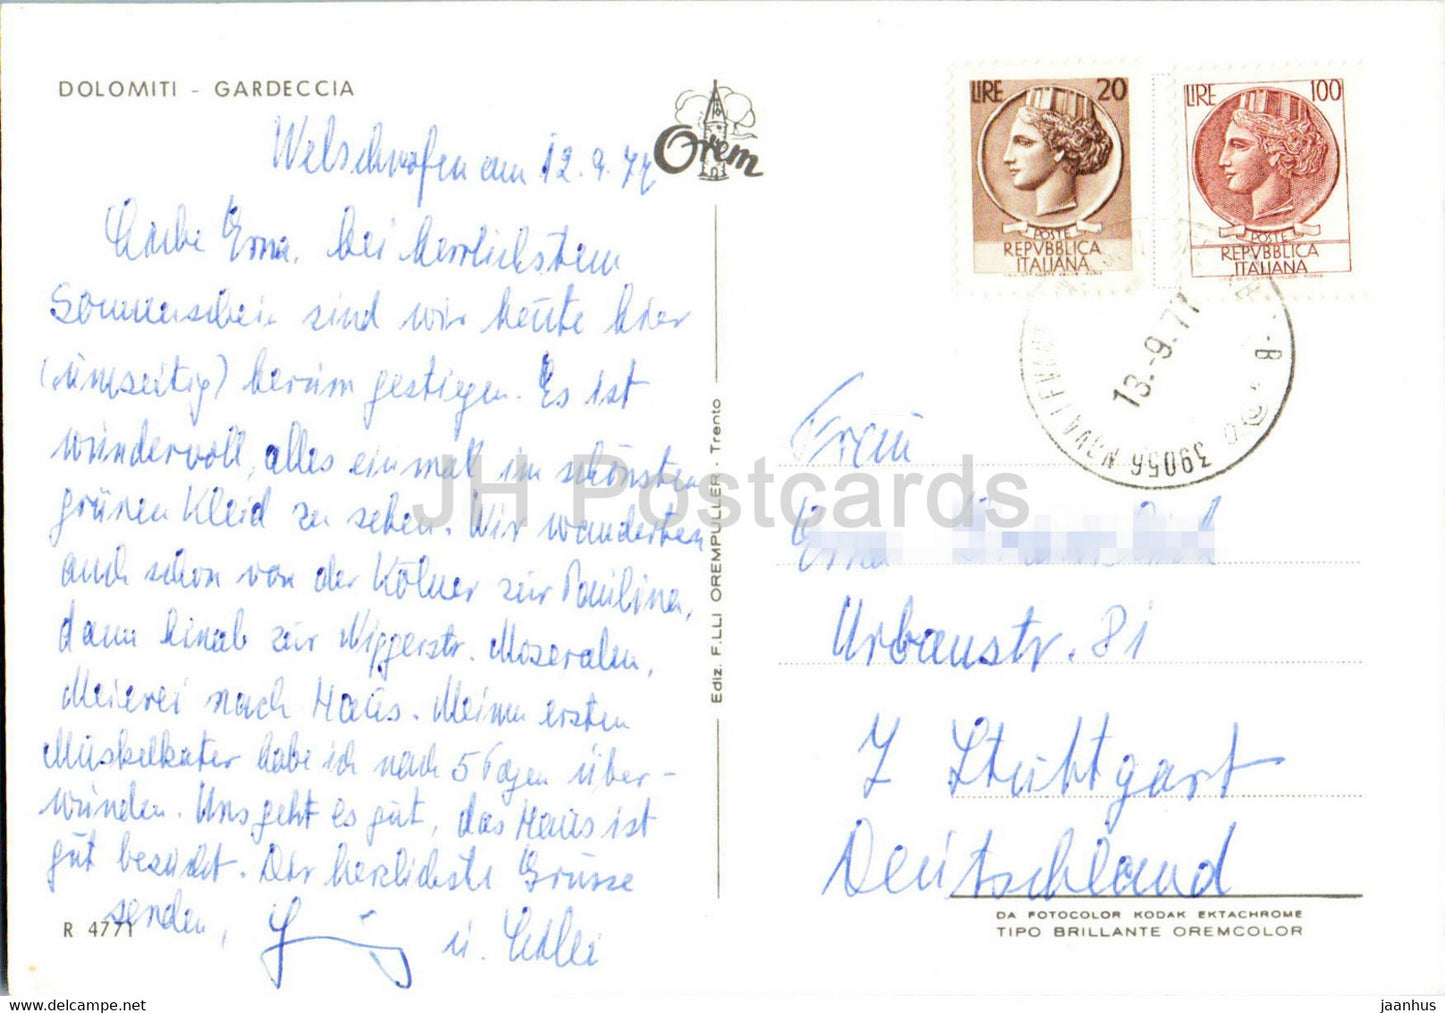 DOLOMITI - GARDECCIA
Orem
Welschnofen am 12.9.77
Liebe Erna, bei herrlichstem
Sonnenschein sind wir heute hier
herum gestiegen. Es ist
wundervoll, alles einmal im schönsten
grünen Kleid zu sehen. Wir wanderten
auch schon von der Kölner zur Paulina,
dann hinab zur Niggerstr. Moseralm,
Meierei nach Haus. Meinen ersten
Muskelkater habe ich nach 5 Tagen über-
wunden. Uns geht es gut, das Haus ist
gut besucht. Dir herzlichste Grüsse
senden,
u.
R 4771
Ediz. F.LLI OREMPULLER - Trento
LIRE 20
POSTE
REPVBBLICA
ITALIANA
LIRE 100
POSTE
REPVBBLICA
ITALIANA
13.-9.77
39056 NOVA
Frau
Erna
Urbanstr. 81
7 Stuttgart
Deutschland
DA FOTOCOLOR KODAK EKTACHROME
TIPO BRILLANTE OREMCOLOR
JH Postcards
https://jhpostcards.com
jaanhus